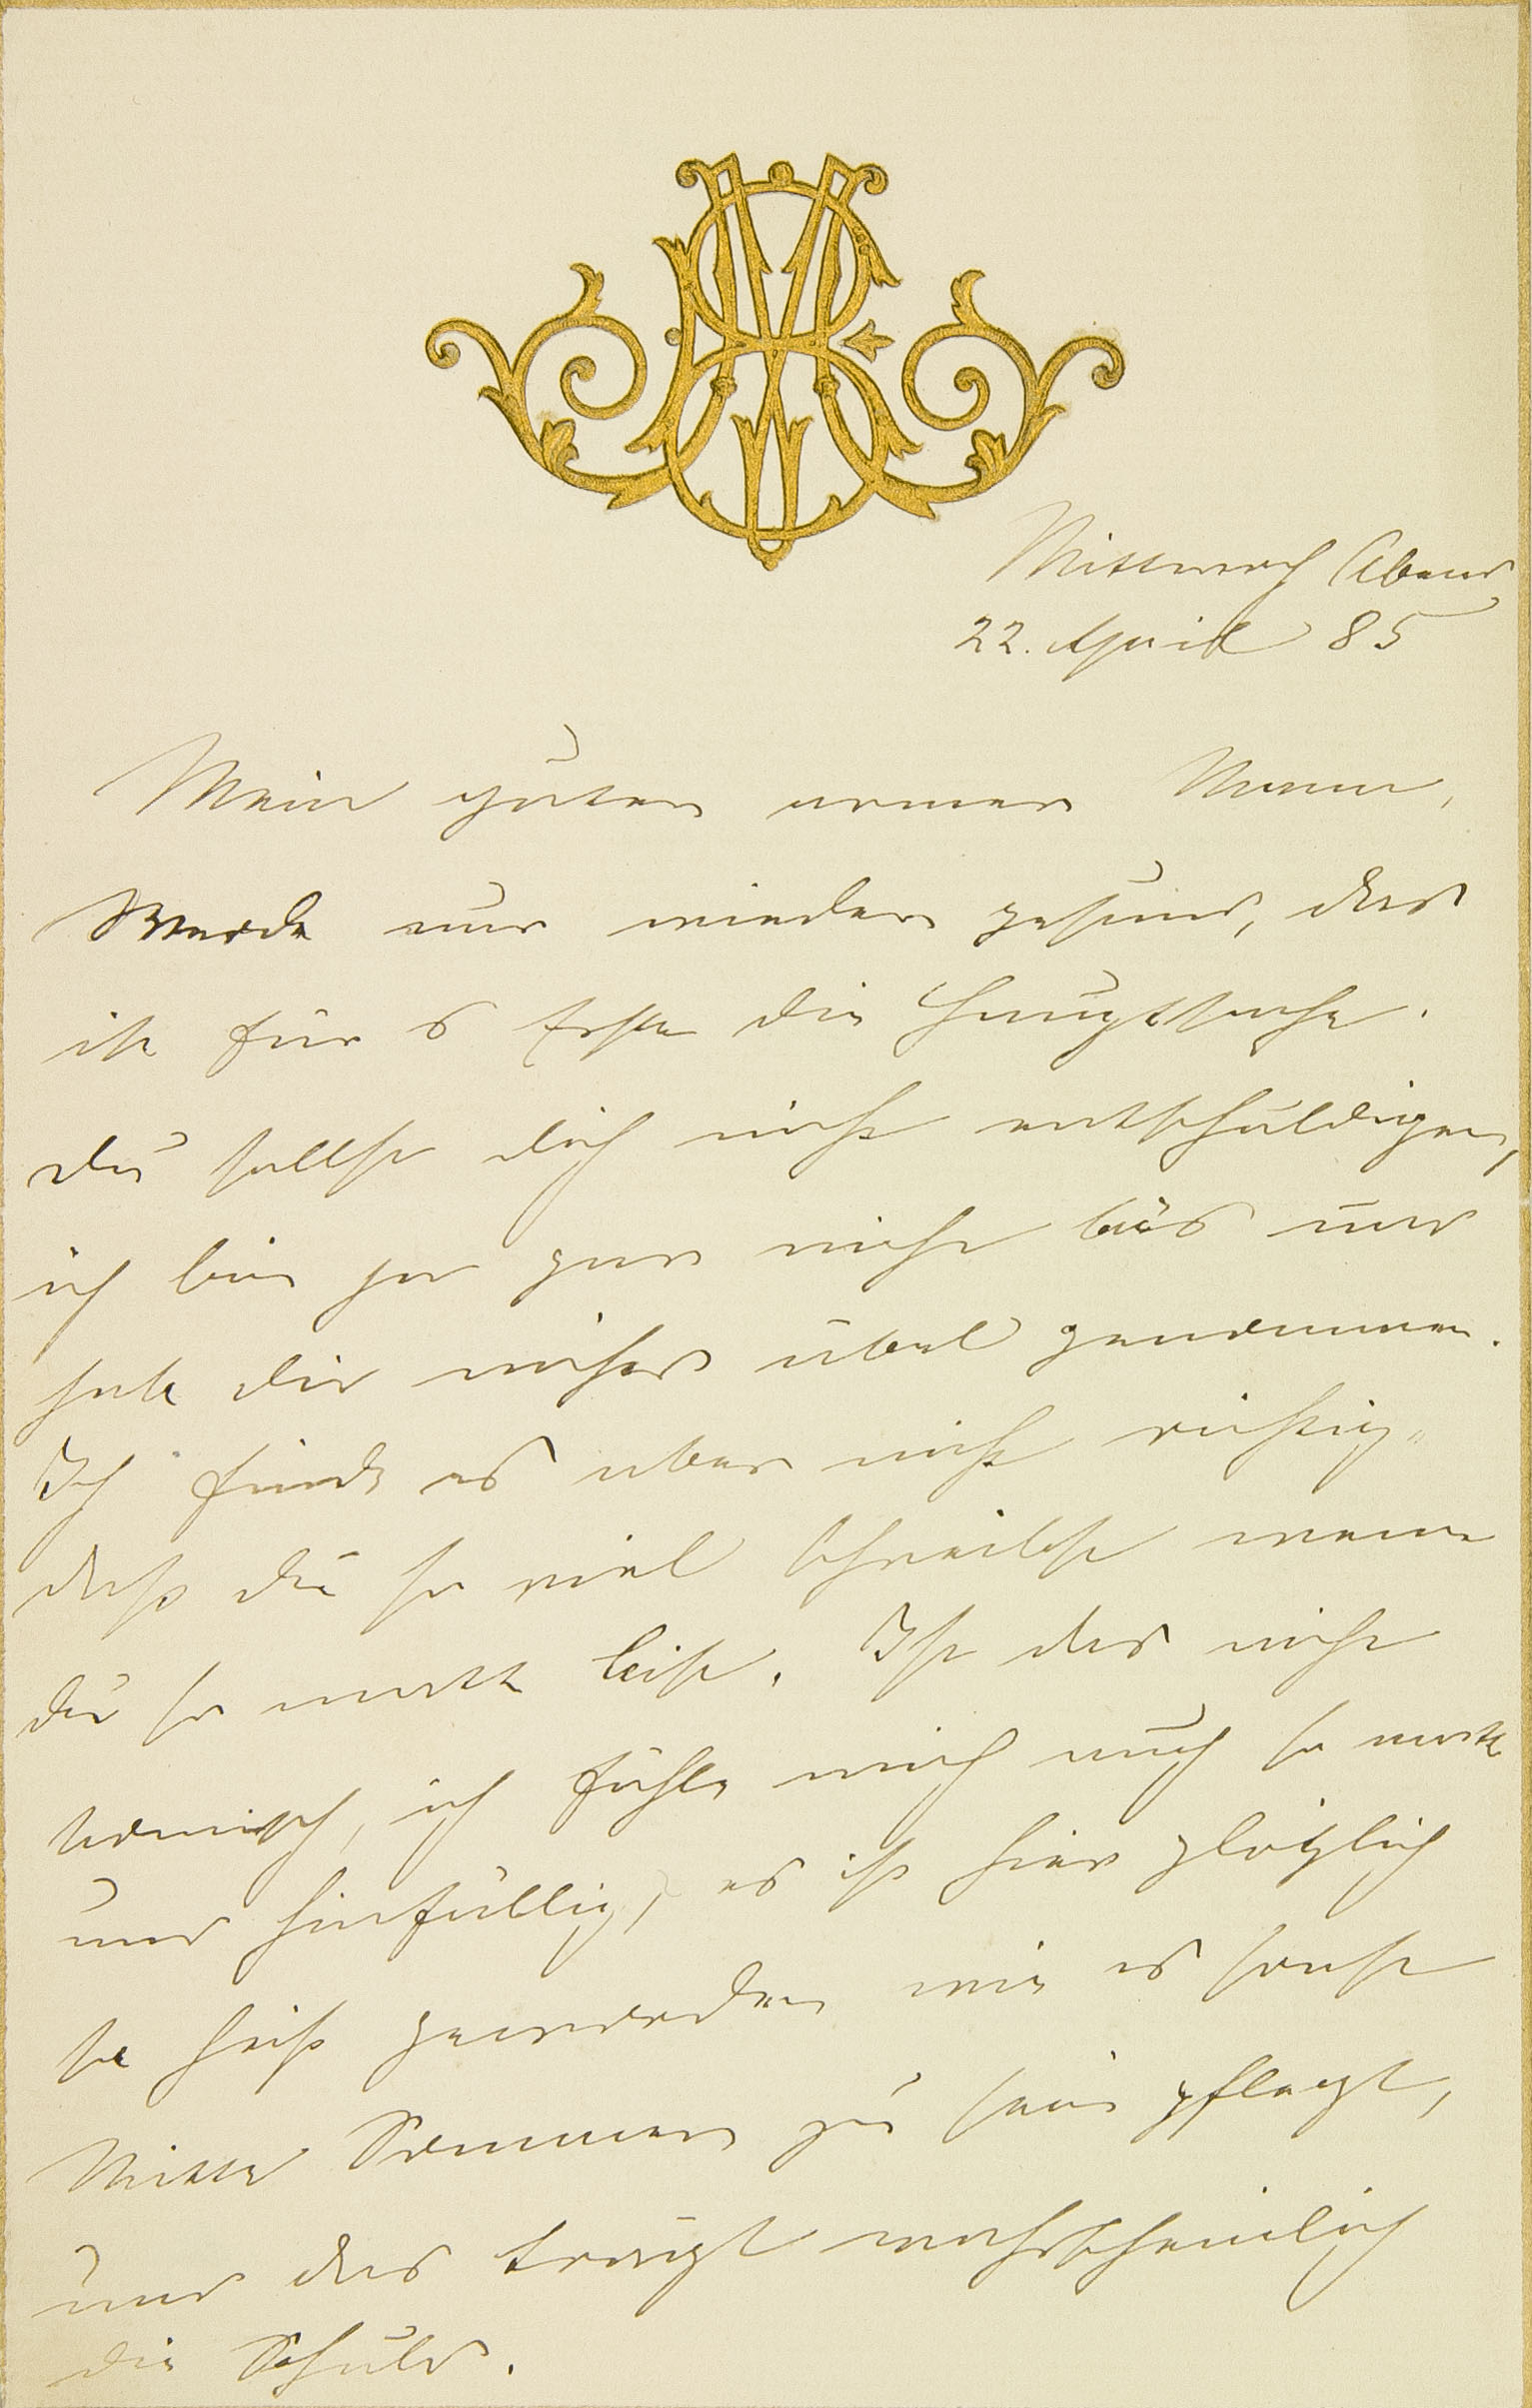 Mittwoch Abend
22. April 85
Mein guter armer Mann,
Werde nur wieder gesund, das
ist für's Erste die Hauptsache.
du sollst dich nicht entschuldigen,
ich bin ja gar nicht bös und
hab dir nichts übel genommen.
Ich finde es aber nicht richtig,
daß du so viel schreibst wenn
du so matt bist. Ist das nicht
komisch, ich fühle mich auch so matt
und hinfällig, es ist hier plötzlich
so heiß geworden wie es sonst
Mitte Sommer zu sein pflegt,
und das trägt wahrscheinlich
die Schuld.